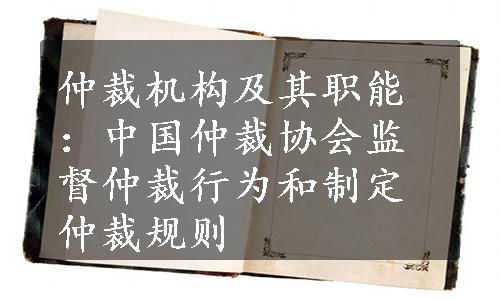 仲裁机构及其职能
：中国仲裁协会监
督仲裁行为和制定
仲裁规则